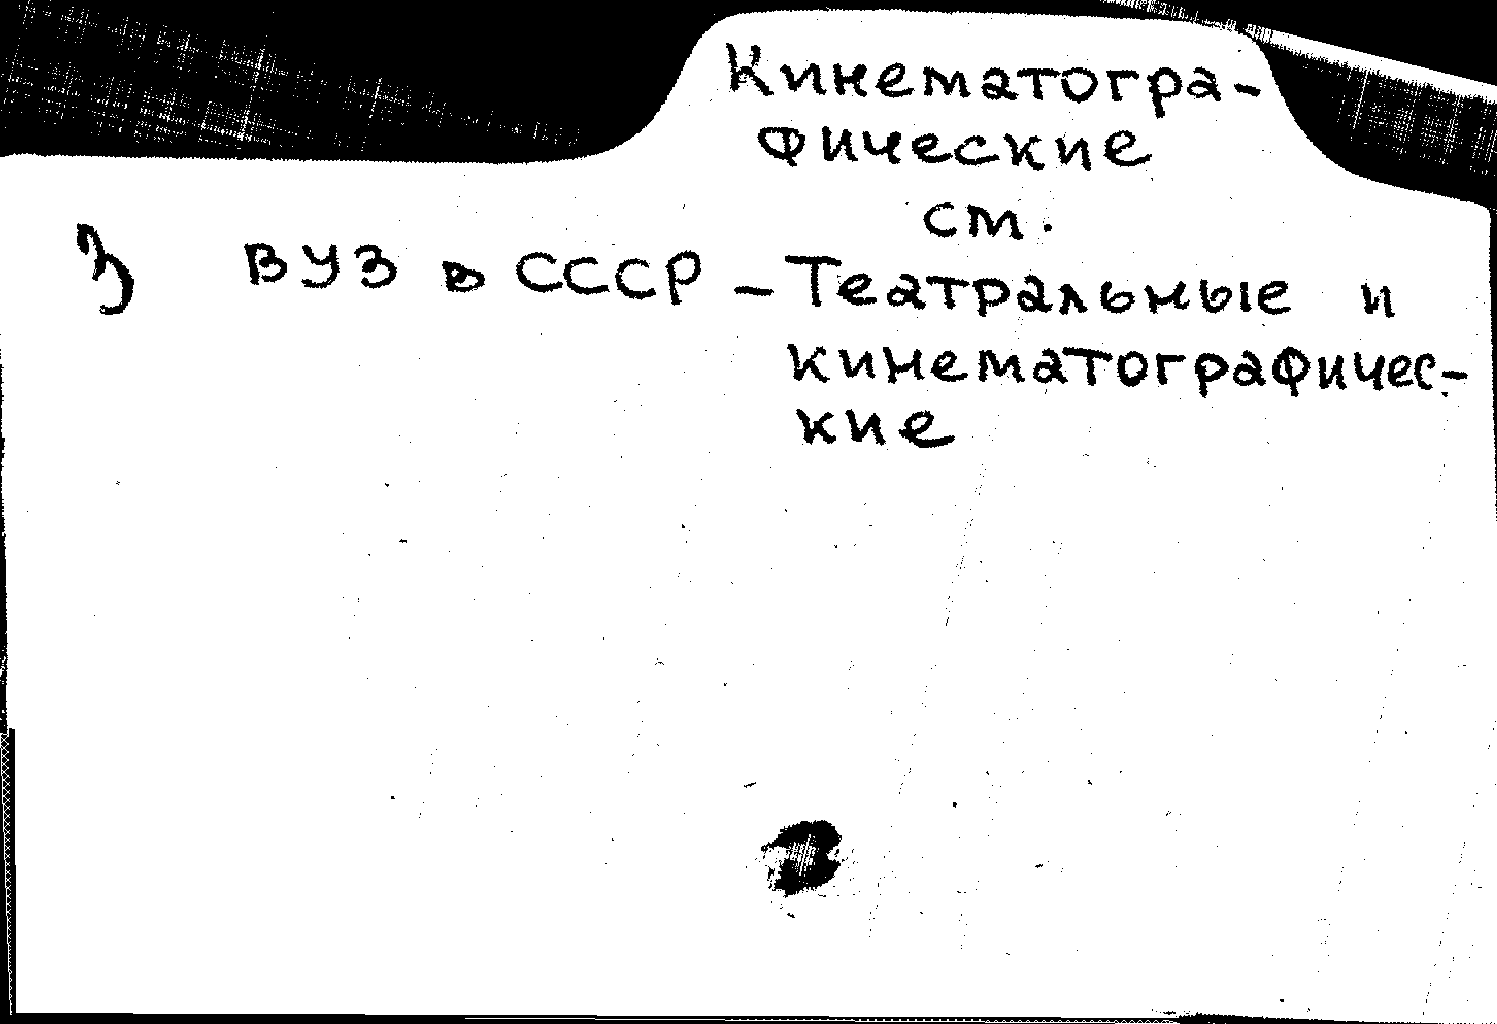 Кинематогра-
фические
см.
ВУЗ в СССР – Театральные и
кинематографичес-
кие